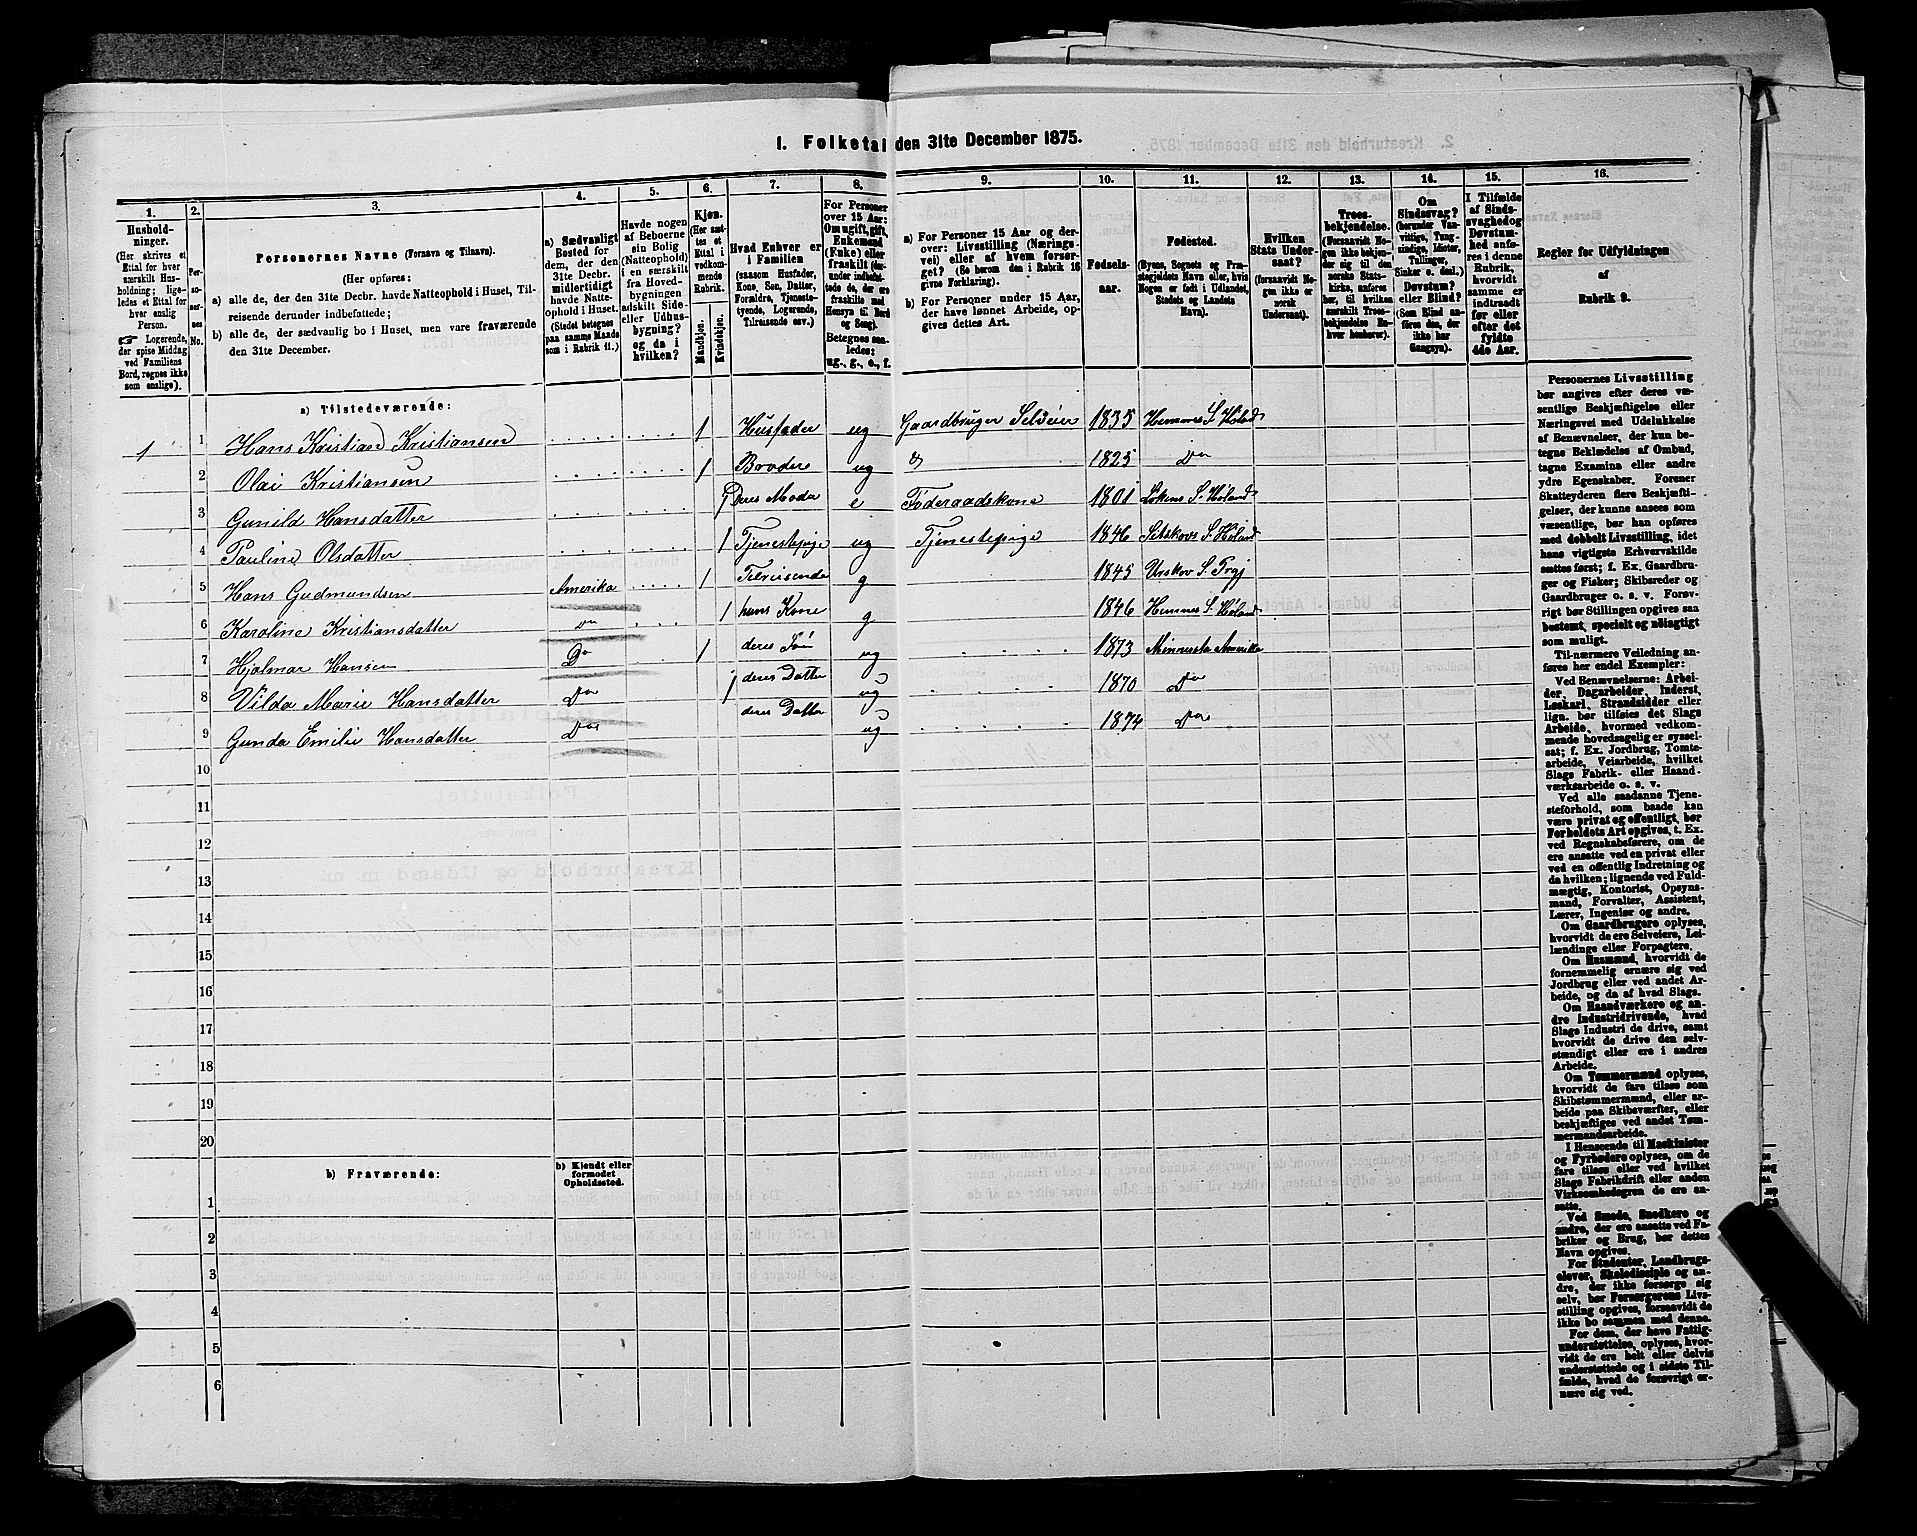 1. Folketal den 31te December 1875.
1. 2. 3. 4. 5. 6. 7. 8. 9. 10. 11. 12. 13. 14. 15. 16.
Hushold-
ninger.
(Her skrives et
Ettal for hver
særskilt Hus-
holdning; lige-
ledes et Ettal for
hver enslig
Person.
☞ Logerende,
der spise Middag
ved Familiens
Bord, regnes ikke
som enslige).
Per-
so-
ner-
nes
No.
Personernes Navne (Fornavn og Tilnavn).
(Her opføres:
a) alle de, der den 31te Decbr. havde Natteophold i Huset, Til-
reisende derunder indbefattede;
b) alle de, der sædvanlig bo i Huset, men vare fraværende
den 31te December.
a) Sædvanligt
Bosted for
dem, der den
31te Decbr.
midlertidigt
havde Natte-
ophold i Huset.
(Stedet betegnes
paa samme Maade
som i Rubrik 11.)
Havde nogen
af Beboerne
sin Bolig
(Natteophold)
i en særskilt
fra Hoved-
bygningen
adskilt Side-
eller Udhus-
bygning?
og da i
hvilken?
Kjøn.
(Her sæt-
tes et
Ettal i
vedkom-
mende
Rubrik.
Mandkjøn.
Kvindekjøn.
Hvad Enhver er
i Familien
(saasom Husfader,
Kone, Søn, Datter,
Forældre, Tjeneste-
tyende, Logerende,
Tilreisende osv.)
For Personer
over 15 Aar:
Om ugift, gift,
Enkemand
(Enke) eller
fraskilt
Betegnes saa-
ledes:
ug., g., e., f.
a) For Personer 15 Aar og der-
over: Livsstilling (Nærings-
vei) eller af hvem forsør-
get? (Se herom den i Rubrik 16
givne Forklaring).
b) For Personer under 15 Aar,
der have lønnet Arbeide, op-
gives dettes Art.
Fødsels-
aar.
Fødested.
(Byens, Sognets og Præ-
stegjeldets Navn eller, hvis
Nogen er født i Udlandet,
Stedets og Landets
Navn).
Hvilken
Stats Under-
saat?
(forsaavidt No-
gen ikke er
norsk
Undersaat).
Troes-
bekjendelse.
(Forsaavidt No-
gen ikke bekjen-
der sig til den
norske Stats-
kirke, anføres
her, til hvilken
særskilt Troes-
bekjendelse En-
hver henhører).
Om
Sindssvag?
(herunder Van-
vittige, Tung-
sindige, Idioter,
Tullinger,
Sinker o. desl.)
Døvstum?
eller Blind?
(Som Blind an-
føres den, der
ikke har
Gangsyn).
I Tilfælde
af Sinds-
svaghed og
Døvstum-
hed anfø-
res i denne
Rubrik,
hvorvidt
samme er
indtraadt
før eller
efter det
fyldte
4de Aar.
Regler for Udfyldningen
af
Rubrik 9.
a) Tilstedeværende:
1 1 Hans Kristian Kristiansen 1 Husfader ug Gaardbruger Selveier 1835 Hemnes S. Høland
2 Olai Kristiansen 1 Broder ug 1825 Do
3 Gunild Hansdatter 1 Deres Moder e Føderaadskone 1801 Løkens S. Høland
4 Pauline Olsdatter 1 Tjenestepige ug Tjenestepige 1846 Setskovs S. Høland
5 Hans Gudmundsen Amerika 1 Tilreisende g 1845 Urskov S. Prgj
6 Karoline Kristiansdatter Do 1 hans Kone g 1846 Hemnes S. Høland
7 Hjalmar Hansen Do 1 deres Søn ug 1873 Minnesota Amerika
8 Vilda Marie Hansdatter Do 1 deres Datter ug 1870 Do
9 Gunda Emilie Hansdatter Do deres Datter ug 1874 Do
10
11
12
13
14
15
16
17
18
19
20
b) Fraværende:
b) Kjendt eller
formodet
Opholdssted.
1
2
3
4
5
6
Personernes Livsstilling
bør angives efter deres væ-
sentlige Beskjæftigelse eller
Næringsvei med Udelukkelse
af Benævnelser, der kun be-
tegne Beklædelse af Ombud,
tagne Examina eller andre
ydre Egenskaber. Forener
Skatteyderen flere Beskjæfti-
gelser, der kunne ansees som
væsentlige, bør han opføres
med dobbelt Livsstilling, idet
hans vigtigste Erhvervskilde
sættes først; f. Ex. Gaardbru-
ger og Fisker; Skibsreder og
Gaardbruger o. s. v. Forøv-
rigt bør Stillingen opgives saa
bestemt, specielt og nøiagtigt
som muligt.
Til nærmere Veiledning an-
føres her endel Exempler:
Ved Benævnelserne: Arbei-
der, Dagarbeider, Inderst,
Løskarl, Strandsidder eller
lign. bør tilføies det Slags
Arbeide, hvormed vedkom-
mende hovedsagelig er syssel-
sat; f. Ex. Jordbrug, Tomte-
arbeide, Veiarbeide, hvilket
Slags Fabrik- eller Haand-
værksarbeide o. s. v.
Ved alle saadanne Tjene-
steforhold, som baade kan
være privat og offentligt, bør
Forholdets Art opgives, t. Ex.
ved Regnskabsførere, om de
ere ansatte ved en privat eller
ved en offentlig Indretning og
da hvilken; lignende ved Fuld-
mægtig, Kontorist, Opsyns-
mand, Forvalter, Assistent,
Lærer, Ingeniør og andre.
Om Gaardbrugere oplyses,
hvorvidt de ere Selveiere, Lei-
lændinge eller Forpagtere.
Om Husmænd, hvorvidt de
fornemmelig ernære sig ved
Jordbrug eller ved andet Ar-
beide, og da af hvad Slags.
Om Haandværkere og an-
dre Industridrivende, hvad
Slags Industri de drive, samt
hvorvidt de drive den selv-
stændigt eller ere i andres
Arbeide.
Om Tømmermænd oplyses,
hvorvidt de fare tilsøs som
Skibstømmermænd, eller ar-
beide paa Skibsværfter, eller
beskjæftiges ved andet Tøm-
mermandsarbeide.
I Henseende til Maskinister
og Fyrbødere oplyses, om de
fare tilsøs eller ved hvilket
Slags Fabrikdrift eller anden
Virksomhedsgren de ere an-
satte.
Ved Smede, Snedkere og
andre, der ere ansatte ved Fa-
briker og Brug, bør dettes
Navn opgives.
For Studenter, Landbrugs-
elever, Skoledisciple og an-
dre, der ikke forsørge sig
selv, bør Forsørgerens Livs-
stilling opgives, forsaavidt de
ikke bo sammen med denne.
For dem, der have Fattig-
understøttelse, oplyses, hvor-
vidt de ere helt eller delvis
understøttede og i sidste Til-
fælde, hvad de forøvrigt er-
nære sig ved.